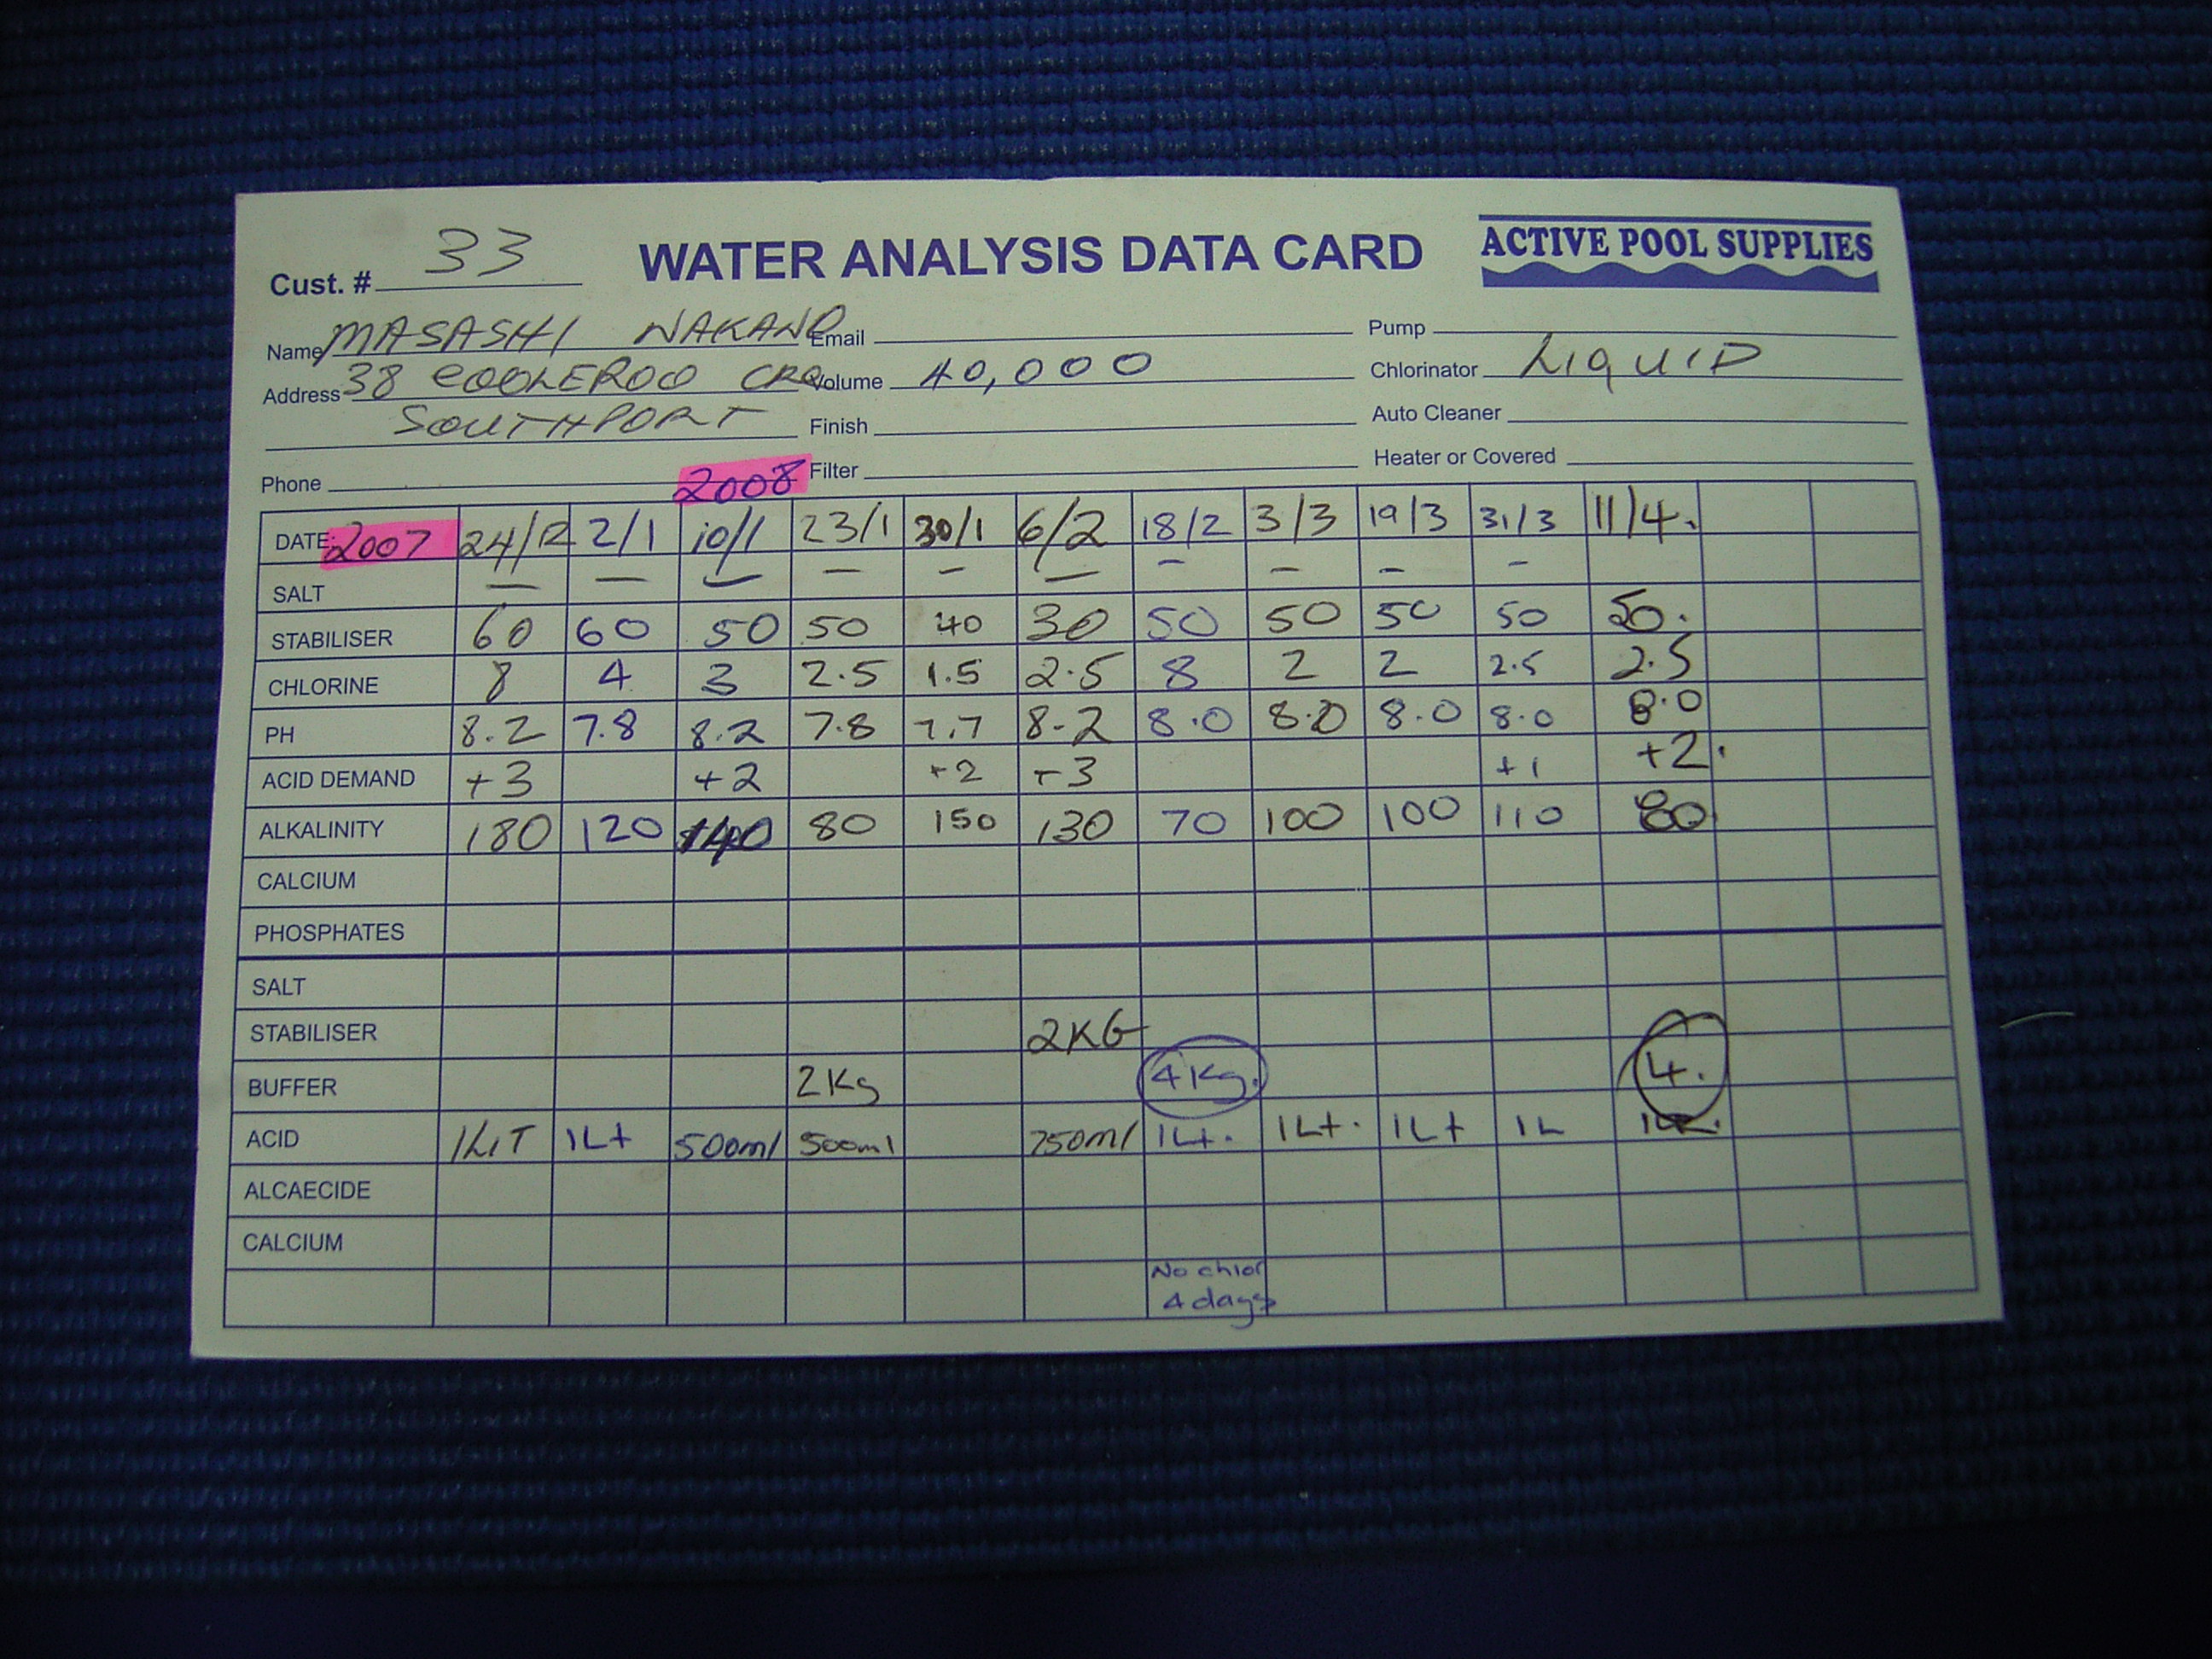 Cust. # 33 WATER ANALYSIS DATA CARD ACTIVE POOL SUPPLIES
Name MASASHI NAKANO Email Pump
Address 38 COOLEROO CRE Volume 40,000 Chlorinator LIQUID
SOUTHPORT Finish Auto Cleaner
Phone 2008 Filter Heater or Covered
DATE: 2007 24/12 2/1 10/1 23/1 30/1 6/2 18/2 3/3 19/3 31/3 11/4.
SALT — — — — — — — — — —
STABILISER 60 60 50 50 40 30 50 50 50 50 50.
CHLORINE 8 4 3 2.5 1.5 2.5 8 2 2 2.5 2.5
PH 8.2 7.8 8.2 7.8 7.7 8.2 8.0 8.0 8.0 8.0 8.0
ACID DEMAND +3 +2 +2 +3 +1 +2.
ALKALINITY 180 120 140 80 150 130 70 100 100 110 80
CALCIUM
PHOSPHATES
SALT
STABILISER 2KG
BUFFER 2Kg 4Kg. 4.
ACID 1LIT 1Lt 500ml 500ml 750ml 1Lt. 1Lt. 1Lt 1L
ALCAECIDE
CALCIUM
No chlor
4 days